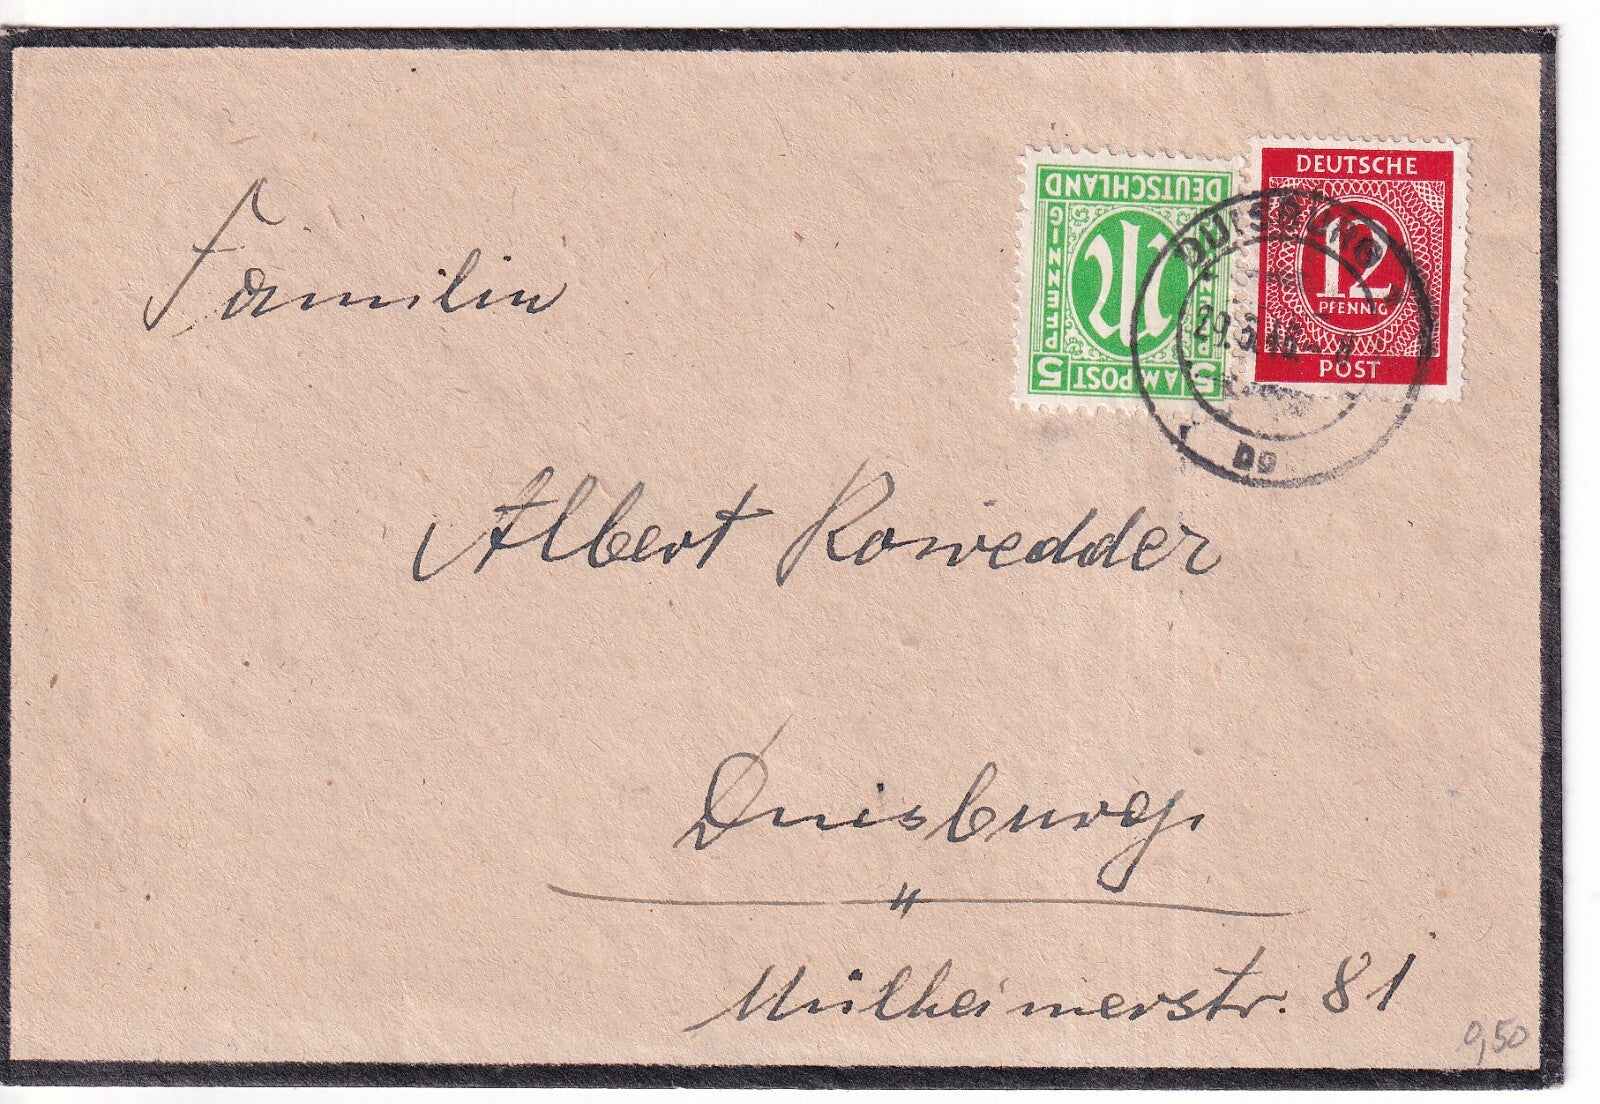 DEUTSCHLAND
PFENNIG
PFENNIG
5 AM POST 5
DEUTSCHE
12
PFENNIG
POST
DUISBURG
29.3.46-8
Familie
Albert Rowedder
Duisburg.
"
Mülheimerstr. 81
0,50